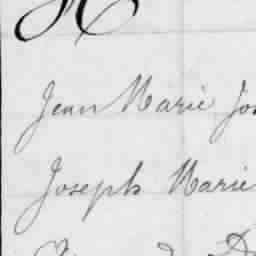 H
Jean Marie Jos
Joseph Marie